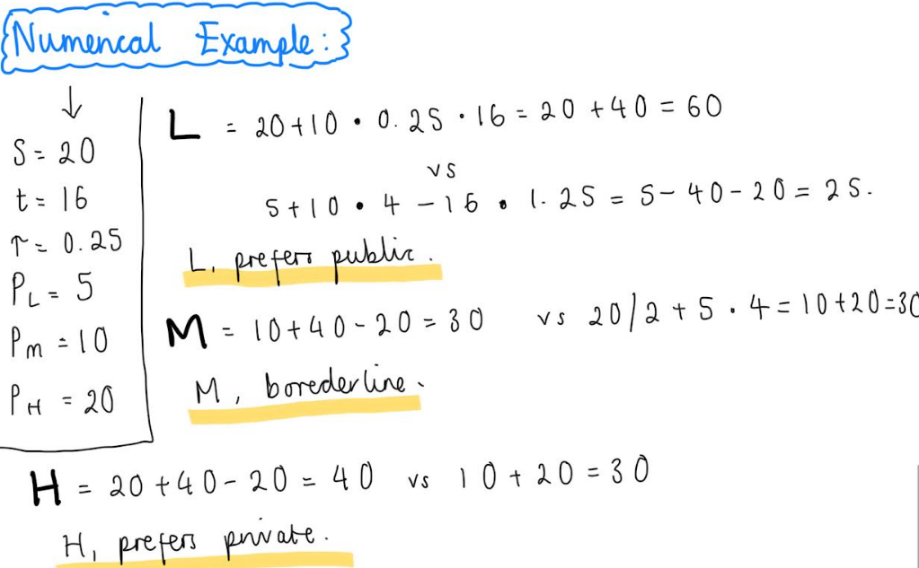 Numerical Example:
↓
S = 20
t = 16
r = 0.25
PL = 5
Pm = 10
PH = 20
L = 20+10 • 0.25 • 16 = 20 + 40 = 60
vs
5+10 • 4 - 16 • 1.25 = 5 - 40 - 20 = 25.
L, prefers public.
M = 10+40-20 = 30 vs 20/2 + 5 • 4 = 10+20=30
M, borederline.
H = 20+40-20 = 40 vs 10+20 = 30
H, prefers private.